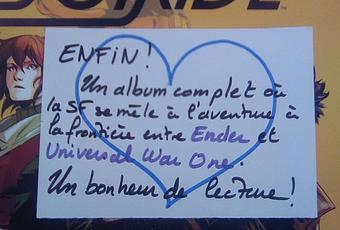 ENFIN!
Un album complet où
la SF se mêle à l'aventure à
la frontière entre Ender et
Universal War One.
Un bonheur de lecture!